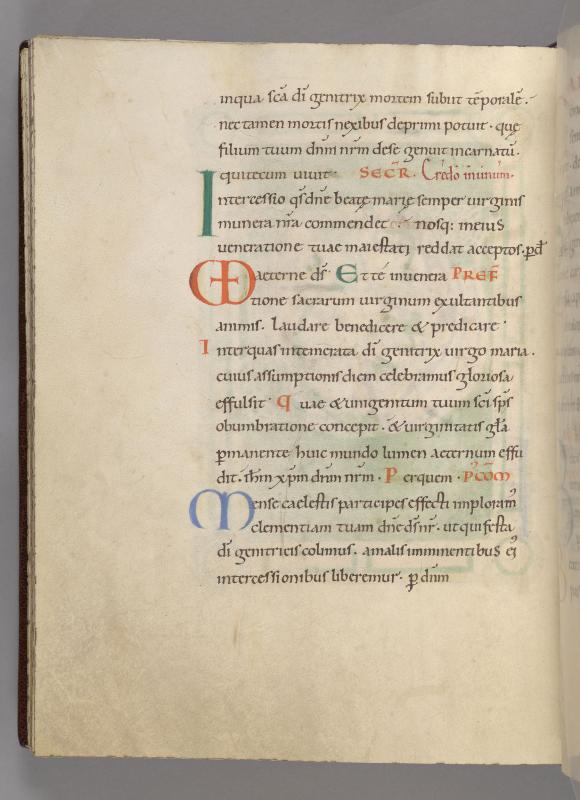 inqua sc̄a dī genitrix mortem subiit tēporalē.
nec tamen mortis nexibus deprimi potuit · quę
filium tuum dn̄m nr̄m dese genuit incarnatū.
qui tecum vivit SECR̄. Credo in unum.
Intercessio qs̄ dn̄e beatę marię semper virginis
munera nr̄a commendet · nosq; in eius
veneratione tuae maiestati reddat acceptos · ꝑ d
aeterne ds̄ Et te in venera PREF̄
tione sacrarum virginum exultantibus
animis. laudare benedicere & predicare
Inter quas intemerata dī genitrix virgo maria.
cuius assumptionis diem celebramus gloriosa
effulsit Quae & unigenitum tuum sc̄i sp̄s
obumbratione concepit · & virginitatis gl̄a
ꝑmanente huic mundo lumen aeternum effu
dit · ih̄m xp̄m dn̄m nr̄m · Per quem · P̄COM̄
Mense caelestis participes effecti imploram᾽
clementiam tuam dn̄e ds̄ nr̄ · ut qui festa
dī genitricis colimus · a malis imminentibus ei᾽
intercessionibus liberemur · ꝑ dn̄m